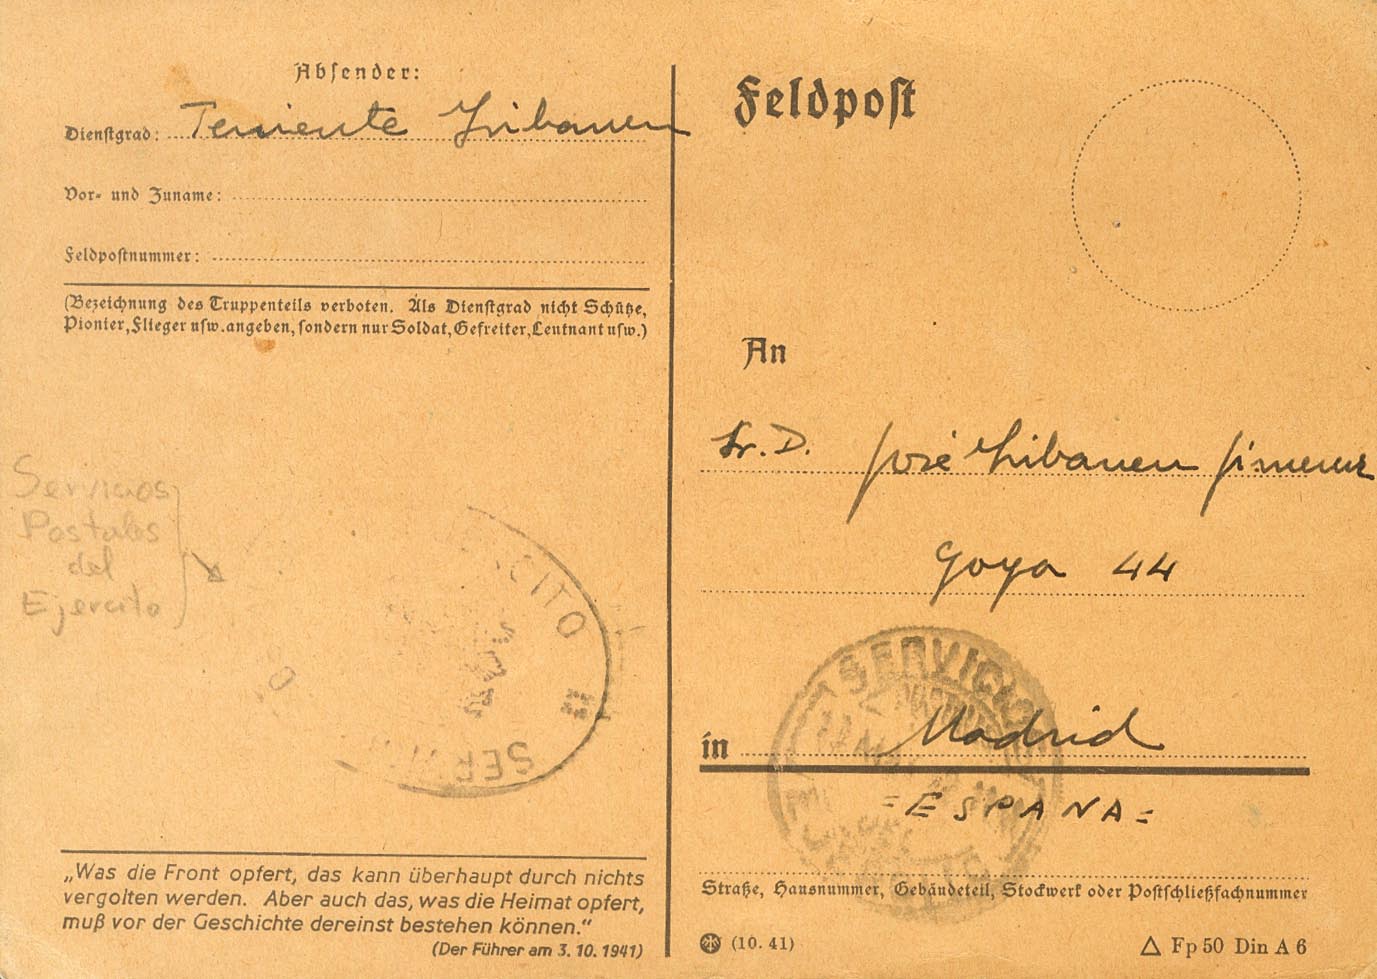 Absender:
Dienstgrad: Teniente Iribarren
Vor- und Zuname:
Feldpostnummer:
(Bezeichnung des Truppenteils verboten. Als Dienstgrad nicht Schütze,
Pionier, Flieger usw. angeben, sondern nur Soldat, Gefreiter, Leutnant usw.)
Servicios
Postales
del
Ejercito
CITO
SER
„Was die Front opfert, das kann überhaupt durch nichts
vergolten werden. Aber auch das, was die Heimat opfert,
muß vor der Geschichte dereinst bestehen können.“
(Der Führer am 3. 10. 1941)
Feldpost
An
Sr. D. José Iribarren Jimenez
Goya 44
in Madrid
=ESPANA=
SERVICIO
Straße, Hausnummer, Gebäudeteil, Stockwerk oder Postschließfachnummer
(10. 41)
△ Fp 50 Din A 6